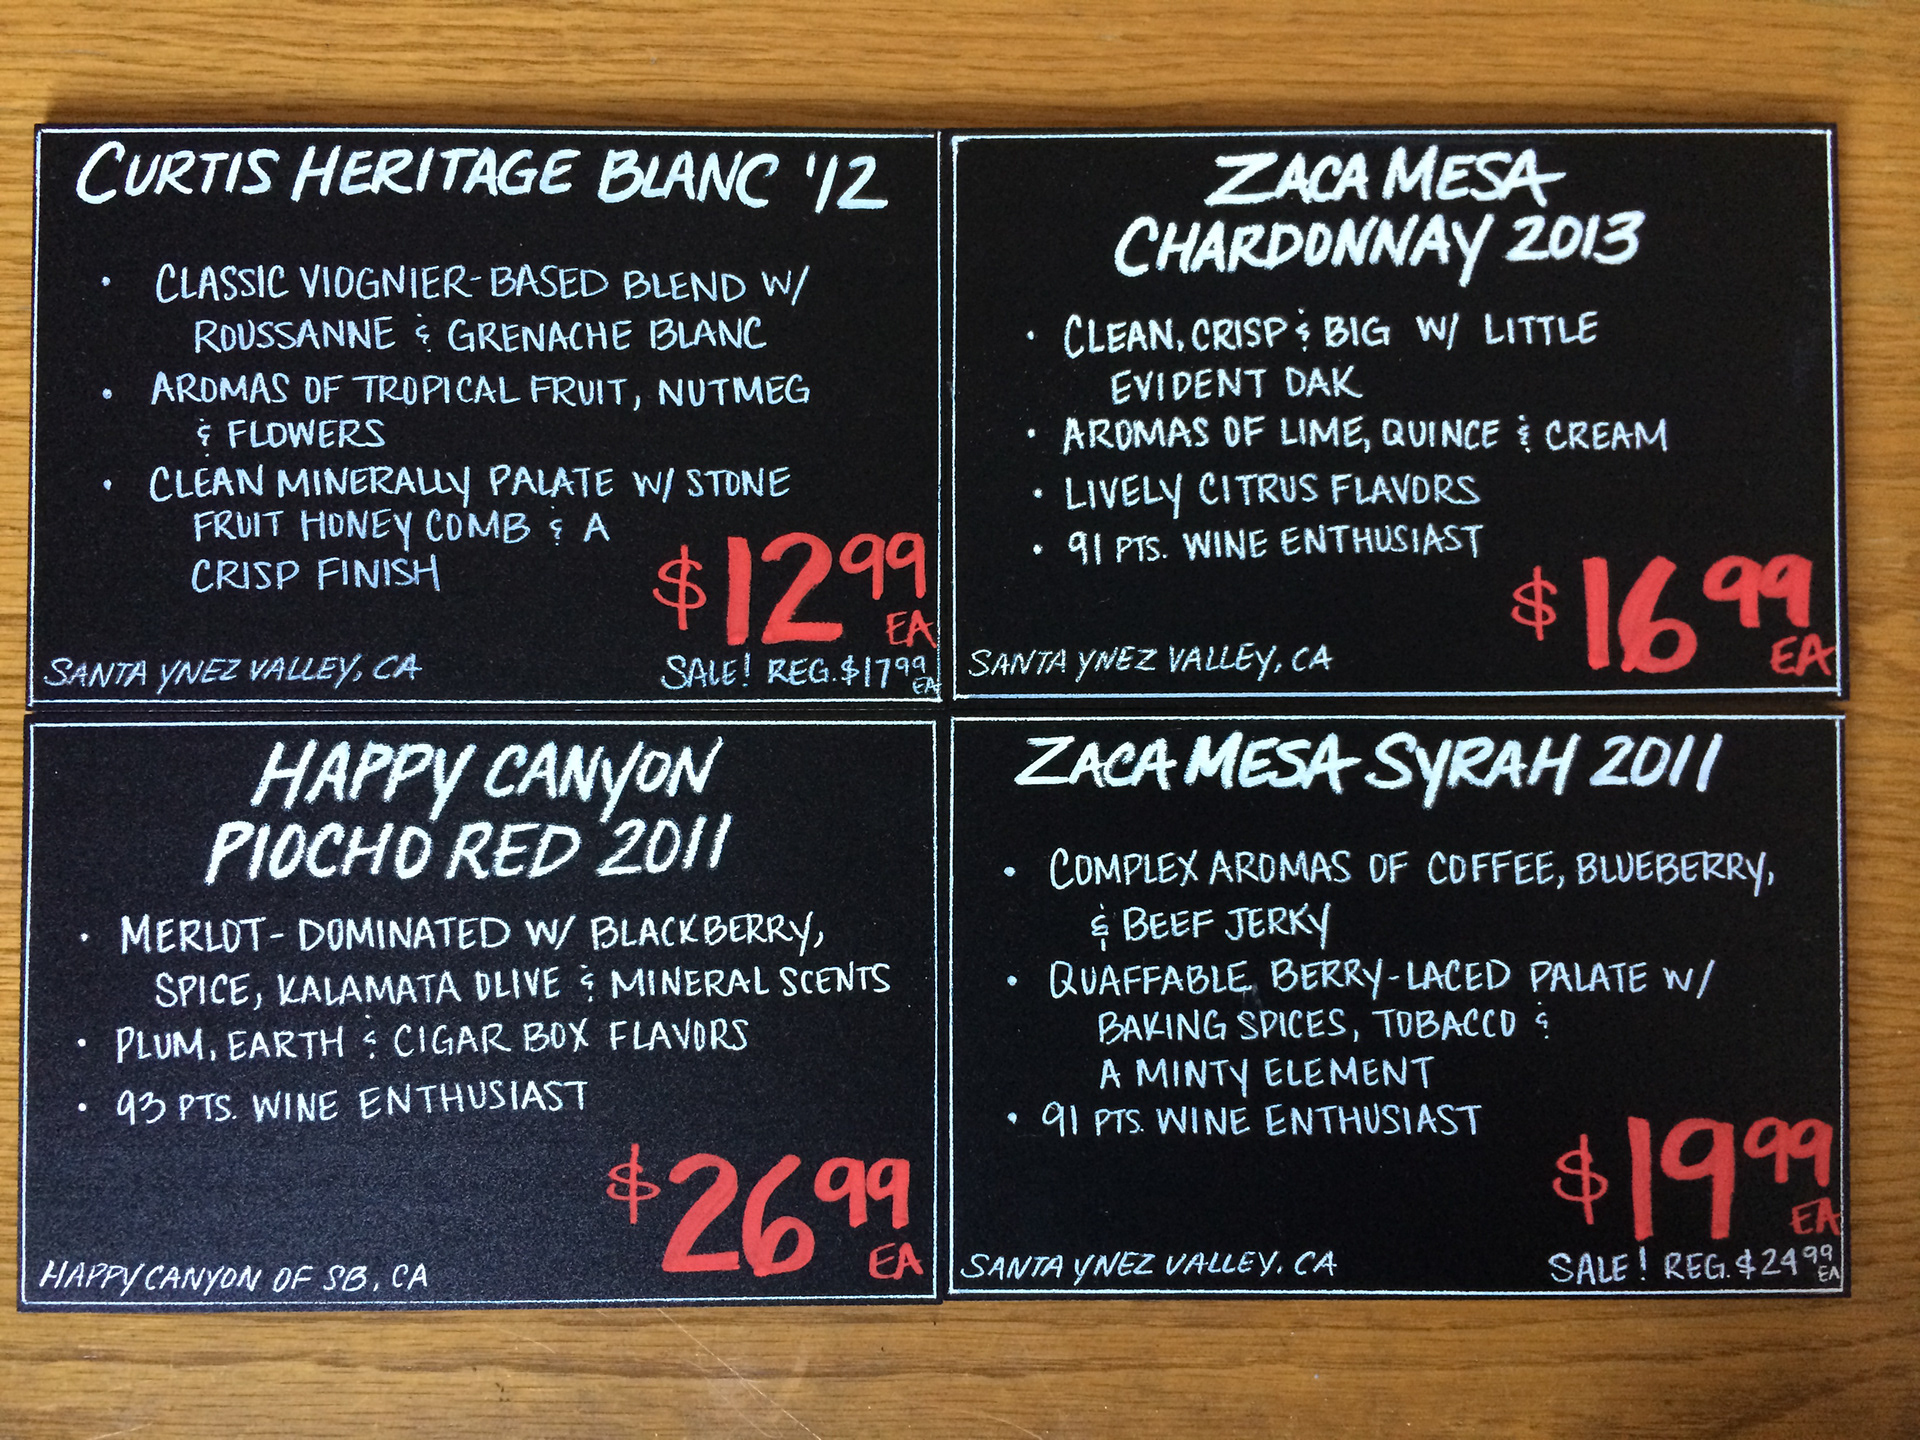 CURTIS HERITAGE BLANC '12
• CLASSIC VIOGNIER-BASED BLEND W/
ROUSSANNE & GRENACHE BLANC
• AROMAS OF TROPICAL FRUIT, NUTMEG
& FLOWERS
• CLEAN MINERALLY PALATE W/ STONE
FRUIT HONEY COMB & A
CRISP FINISH
$12.99
EA
SANTA YNEZ VALLEY, CA
SALE! REG. $17.99 EA
ZACA MESA
CHARDONNAY 2013
• CLEAN, CRISP & BIG W/ LITTLE
EVIDENT OAK
• AROMAS OF LIME, QUINCE & CREAM
• LIVELY CITRUS FLAVORS
• 91 PTS. WINE ENTHUSIAST
$16.99
EA
SANTA YNEZ VALLEY, CA
HAPPY CANYON
PIOCHO RED 2011
• MERLOT-DOMINATED W/ BLACKBERRY,
SPICE, KALAMATA OLIVE & MINERAL SCENTS
• PLUM, EARTH & CIGAR BOX FLAVORS
• 93 PTS. WINE ENTHUSIAST
$26.99
EA
HAPPY CANYON OF SB, CA
ZACA MESA SYRAH 2011
• COMPLEX AROMAS OF COFFEE, BLUEBERRY,
& BEEF JERKY
• QUAFFABLE, BERRY-LACED PALATE W/
BAKING SPICES, TOBACCO &
A MINTY ELEMENT
• 91 PTS. WINE ENTHUSIAST
$19.99
EA
SANTA YNEZ VALLEY, CA
SALE! REG. $24.99 EA